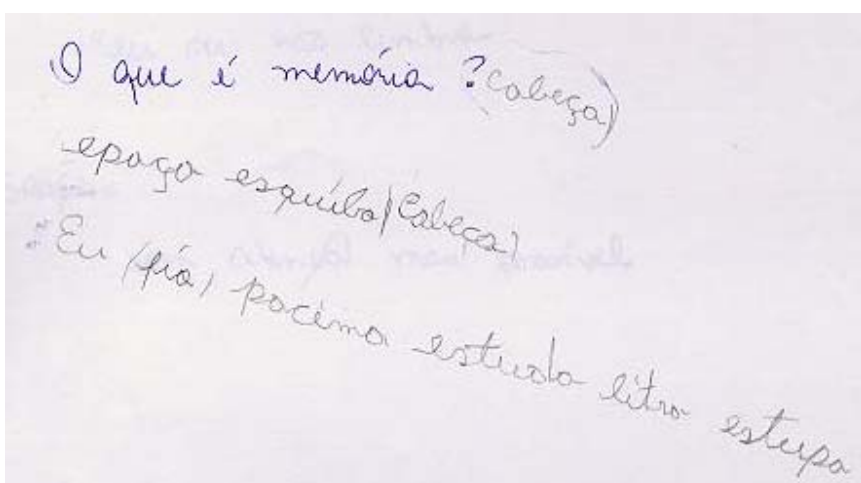 O que é memória? (Cabeça)
epaço esquiba (Cabeça)
"Eu pacima estuda litra estupa